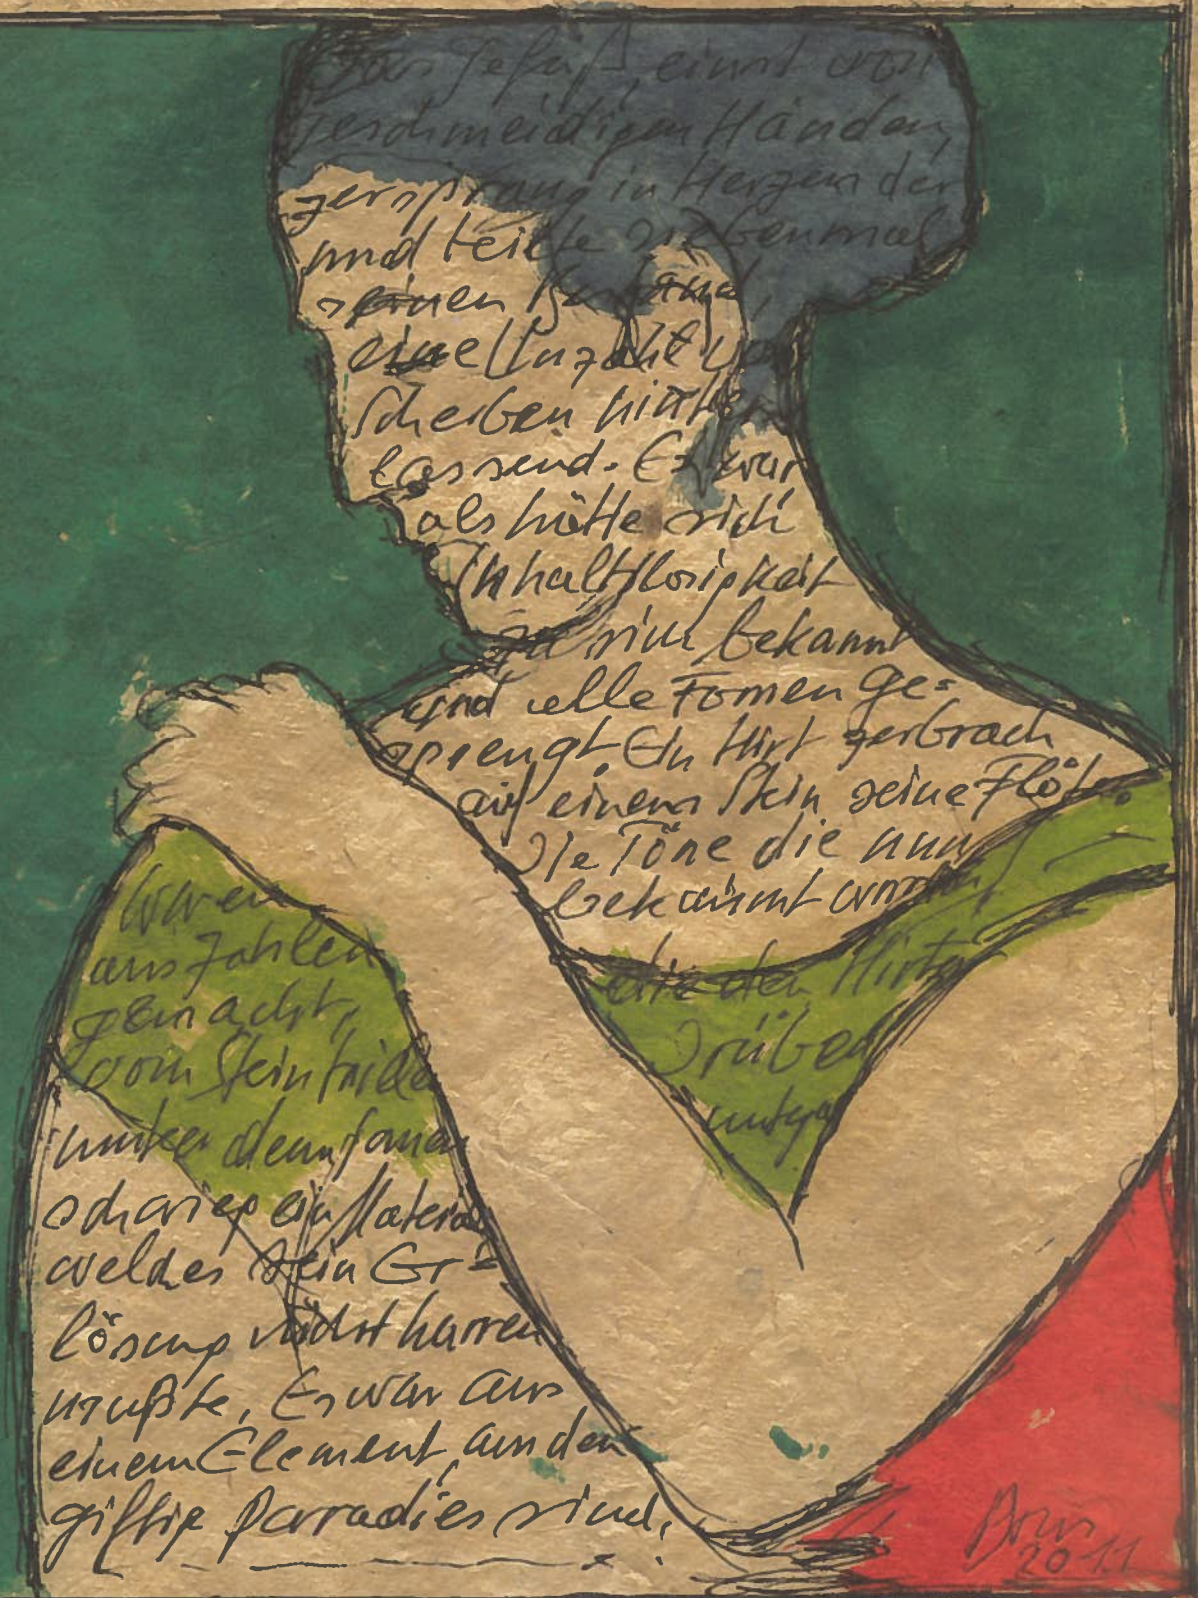 Das Gefäß, einst von
geschmeidigen Händen,
zersprang in Herzen der
und teilte siebenmal
seinen
eine Unzahl
Scherben hinter
lassend. Es war
als hätte sich
Inhaltslosigkeit
zu sich bekannt
und alle Formen ge=
sprengt. Ein Hirt zerbrach
auf einem Stein seine Flöte.
Die Töne die nun
bekannt wurden
waren
aus Zahlen
gemacht,
die den Hirten
drüben
vom Stein
unter dem
schwieg ein Material
welches sein Er=
lösung nicht harren
mußte. Es war aus
einem Element, aus dem
giftig Parradies sind.
2011